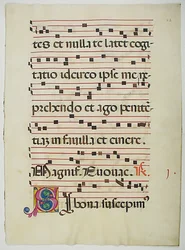 tes et nulla te latet cogi
tatio idcirco ipse me re
prehendo et ago penite
tiaȝ in favilla et cinere.
Magnif. Euouae. R.
Si bona suscepim⁹